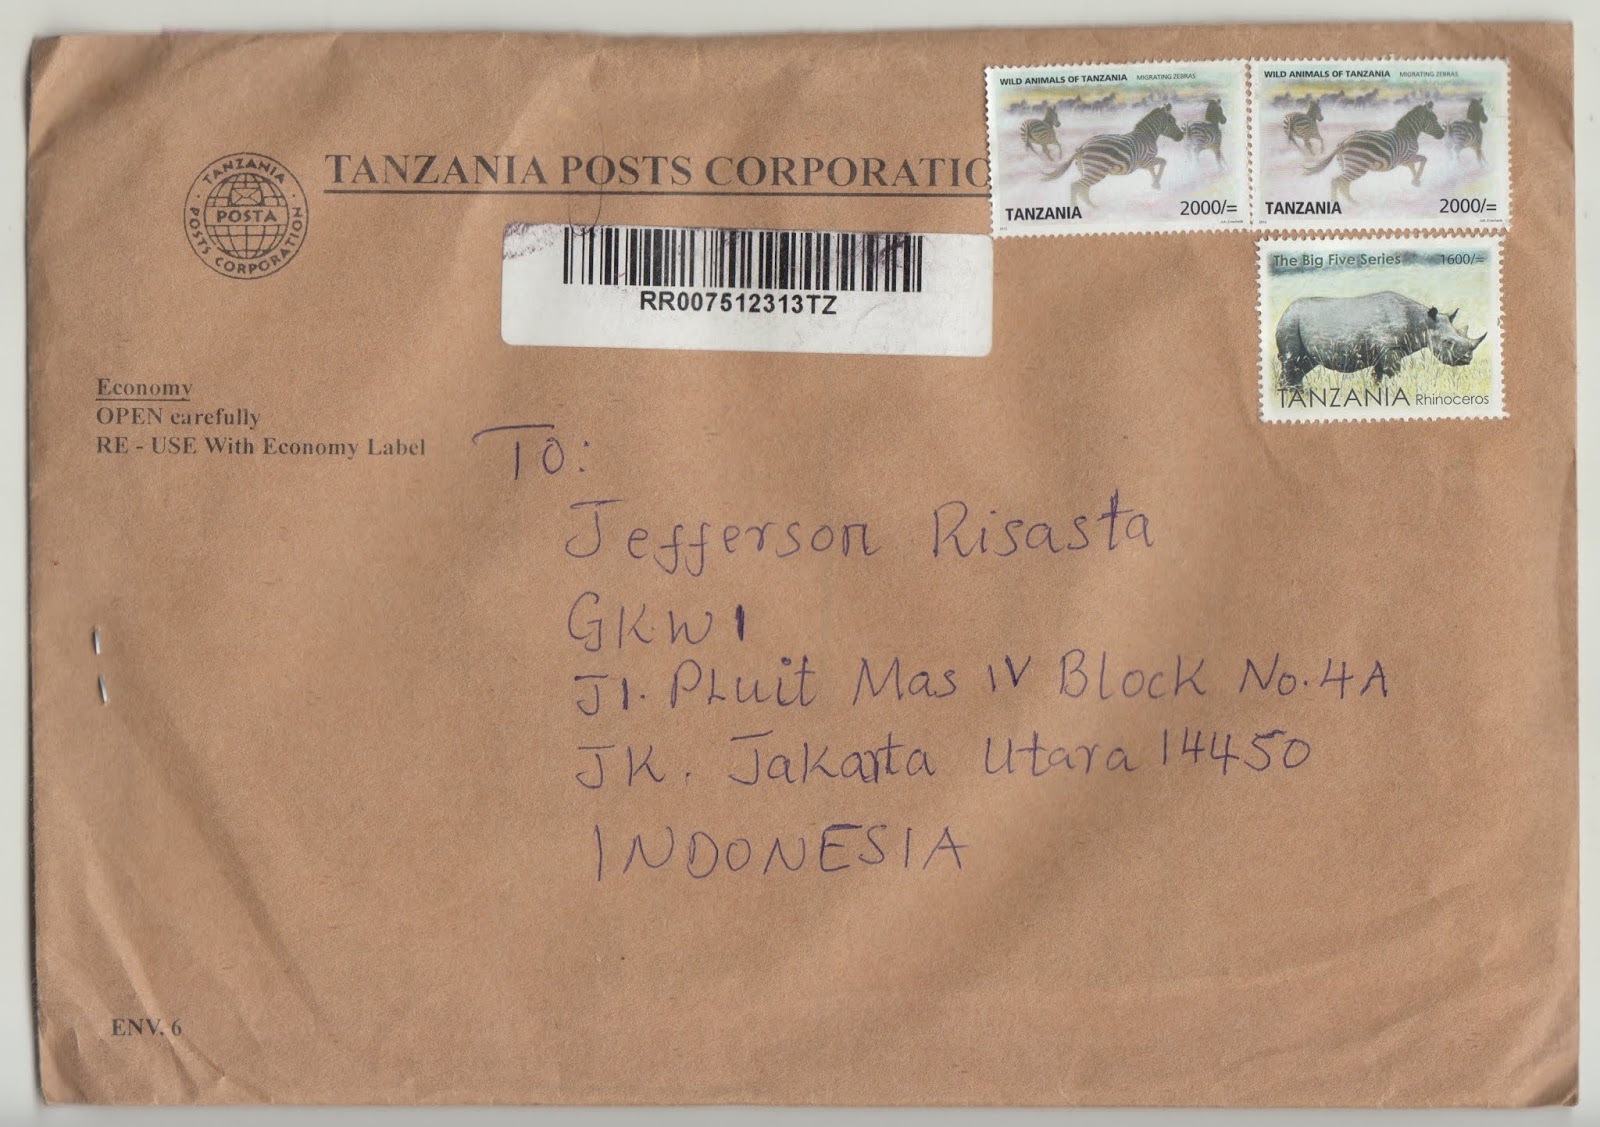 TANZANIA POSTS CORPORATIO
TANZANIA
POSTA
POSTS CORPORATION
WILD ANIMALS OF TANZANIA MIGRATING ZEBRAS
TANZANIA 2000/=
WILD ANIMALS OF TANZANIA MIGRATING ZEBRAS
TANZANIA 2000/=
The Big Five Series 1600/=
TANZANIA Rhinoceros
RR007512313TZ
Economy
OPEN carefully
RE - USE With Economy Label
TO:
Jefferson Risasta
GKW1
J1. PLuit Mas IV Block No. 4A
JK. Jakarta Utara 14450
INDONESIA
ENV. 6